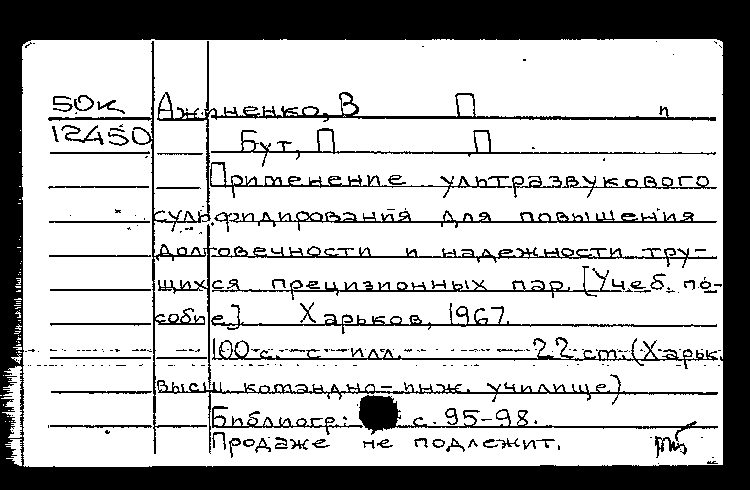 50к Ажиненко, В П п
12450 Бут, П П
Применение ультразвукового
сульфидирования для повышения
долговечности и надежности тру-
щихся прецизионных пар. [Учеб. по-
собие] Харьков, 1967.
100 с. с илл. 22 см. (Харьк.
высш. командно-инж. училище)
Библиогр: с. 95-98.
Продаже не подлежит.